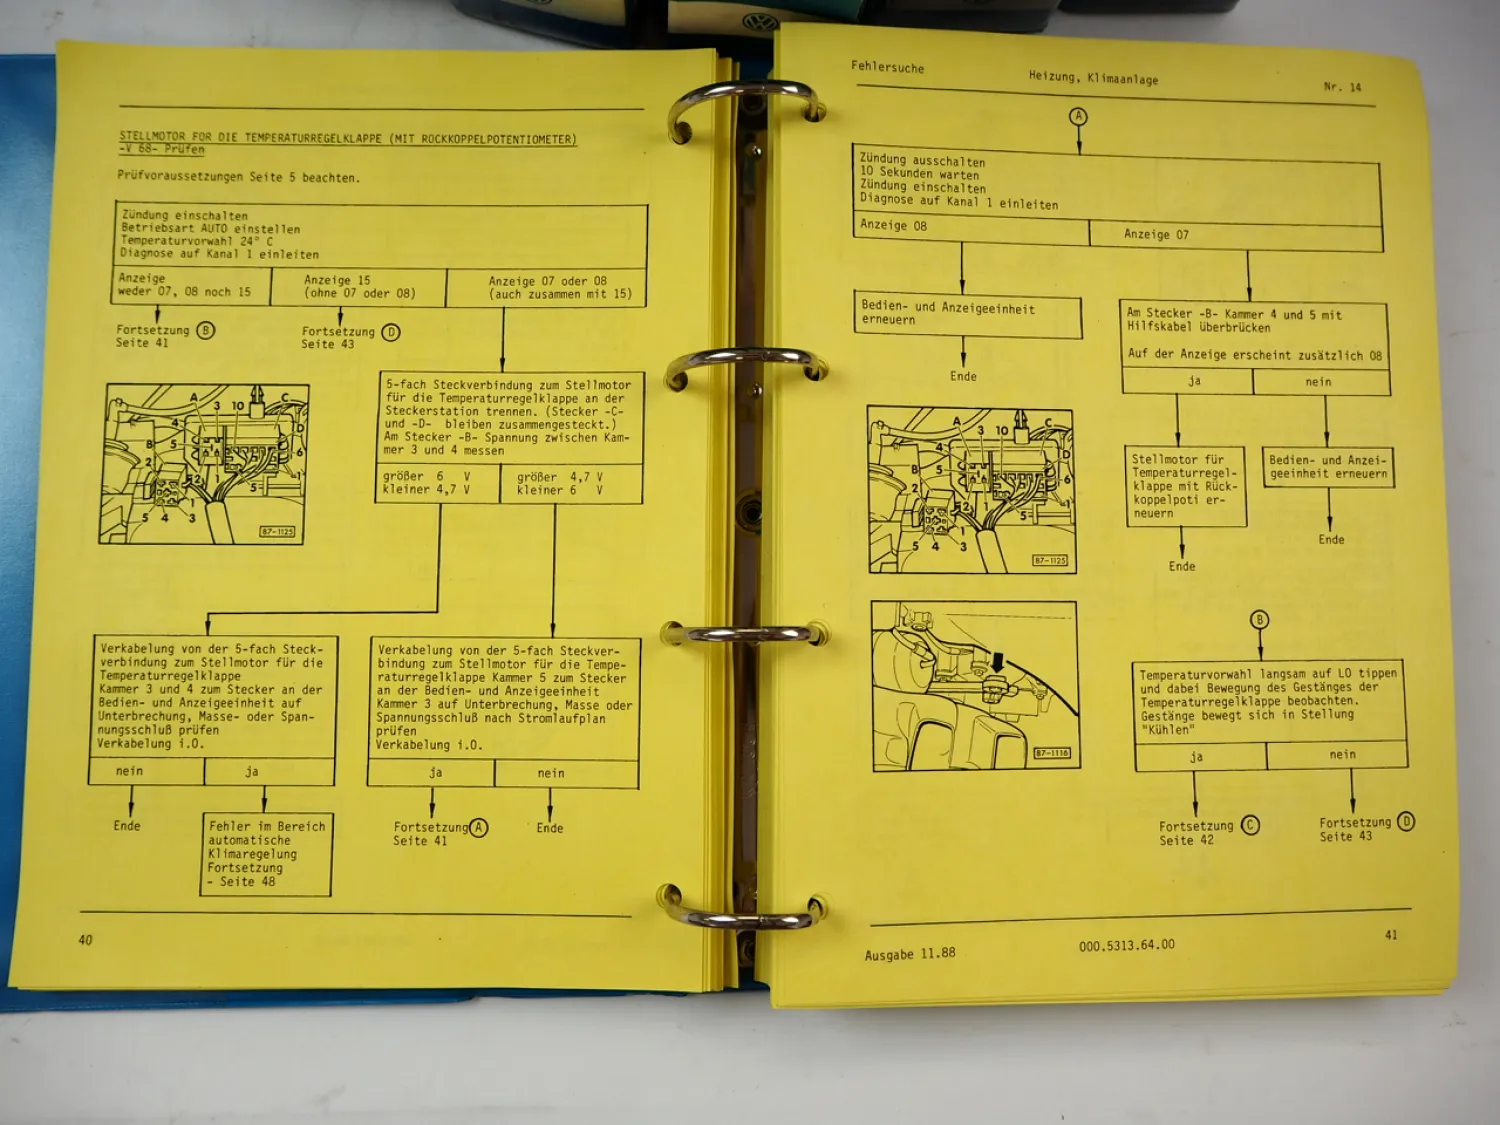 STELLMOTOR FÜR DIE TEMPERATURREGELKLAPPE (MIT RÜCKKOPPELPOTENTIOMETER)
-V 68- Prüfen
Prüfvoraussetzungen Seite 5 beachten.
Zündung einschalten
Betriebsart AUTO einstellen
Temperaturvorwahl 24° C
Diagnose auf Kanal 1 einleiten
Anzeige
weder 07, 08 noch 15
Anzeige 15
(ohne 07 oder 08)
Anzeige 07 oder 08
(auch zusammen mit 15)
Fortsetzung B
Seite 41
Fortsetzung D
Seite 43
5-fach Steckverbindung zum Stellmotor
für die Temperaturregelklappe an der
Steckerstation trennen. (Stecker -C-
und -D- bleiben zusammengesteckt.)
Am Stecker -B- Spannung zwischen Kam-
mer 3 und 4 messen
größer 6 V
kleiner 4,7 V
größer 4,7 V
kleiner 6 V
A 3 10 C
4 D
B 5 6
2
2 1 5 1
1
5 4 3
87-1125
Verkabelung von der 5-fach Steck-
verbindung zum Stellmotor für die
Temperaturregelklappe
Kammer 3 und 4 zum Stecker an der
Bedien- und Anzeigeeinheit auf
Unterbrechung, Masse- oder Span-
nungsschluß prüfen
Verkabelung i.O.
nein ja
Ende
Fehler im Bereich
automatische
Klimaregelung
Fortsetzung
- Seite 48
Verkabelung von der 5-fach Steckver-
bindung zum Stellmotor für die Tempe-
raturregelklappe Kammer 5 zum Stecker
an der Bedien- und Anzeigeeinheit
Kammer 3 auf Unterbrechung, Masse oder
Spannungsschluß nach Stromlaufplan
prüfen
Verkabelung i.O.
ja nein
Fortsetzung A
Seite 41
Ende
40
Fehlersuche
Heizung, Klimaanlage
Nr. 14
A
Zündung ausschalten
10 Sekunden warten
Zündung einschalten
Diagnose auf Kanal 1 einleiten
Anzeige 08
Anzeige 07
Bedien- und Anzeigeeinheit
erneuern
Ende
Am Stecker -B- Kammer 4 und 5 mit
Hilfskabel überbrücken
Auf der Anzeige erscheint zusätzlich 08
ja nein
Stellmotor für
Temperaturregel-
klappe mit Rück-
koppelpoti er-
neuern
Ende
Bedien- und Anzei-
geeinheit erneuern
Ende
A 3 10 C
4 D
B 5 6
2
2 1 5 1
1
5 4 3
87-1125
87-1116
B
Temperaturvorwahl langsam auf LO tippen
und dabei Bewegung des Gestänges der
Temperaturregelklappe beobachten.
Gestänge bewegt sich in Stellung
"Kühlen"
ja nein
Fortsetzung C
Seite 42
Fortsetzung D
Seite 43
Ausgabe 11.88
000.5313.64.00
41